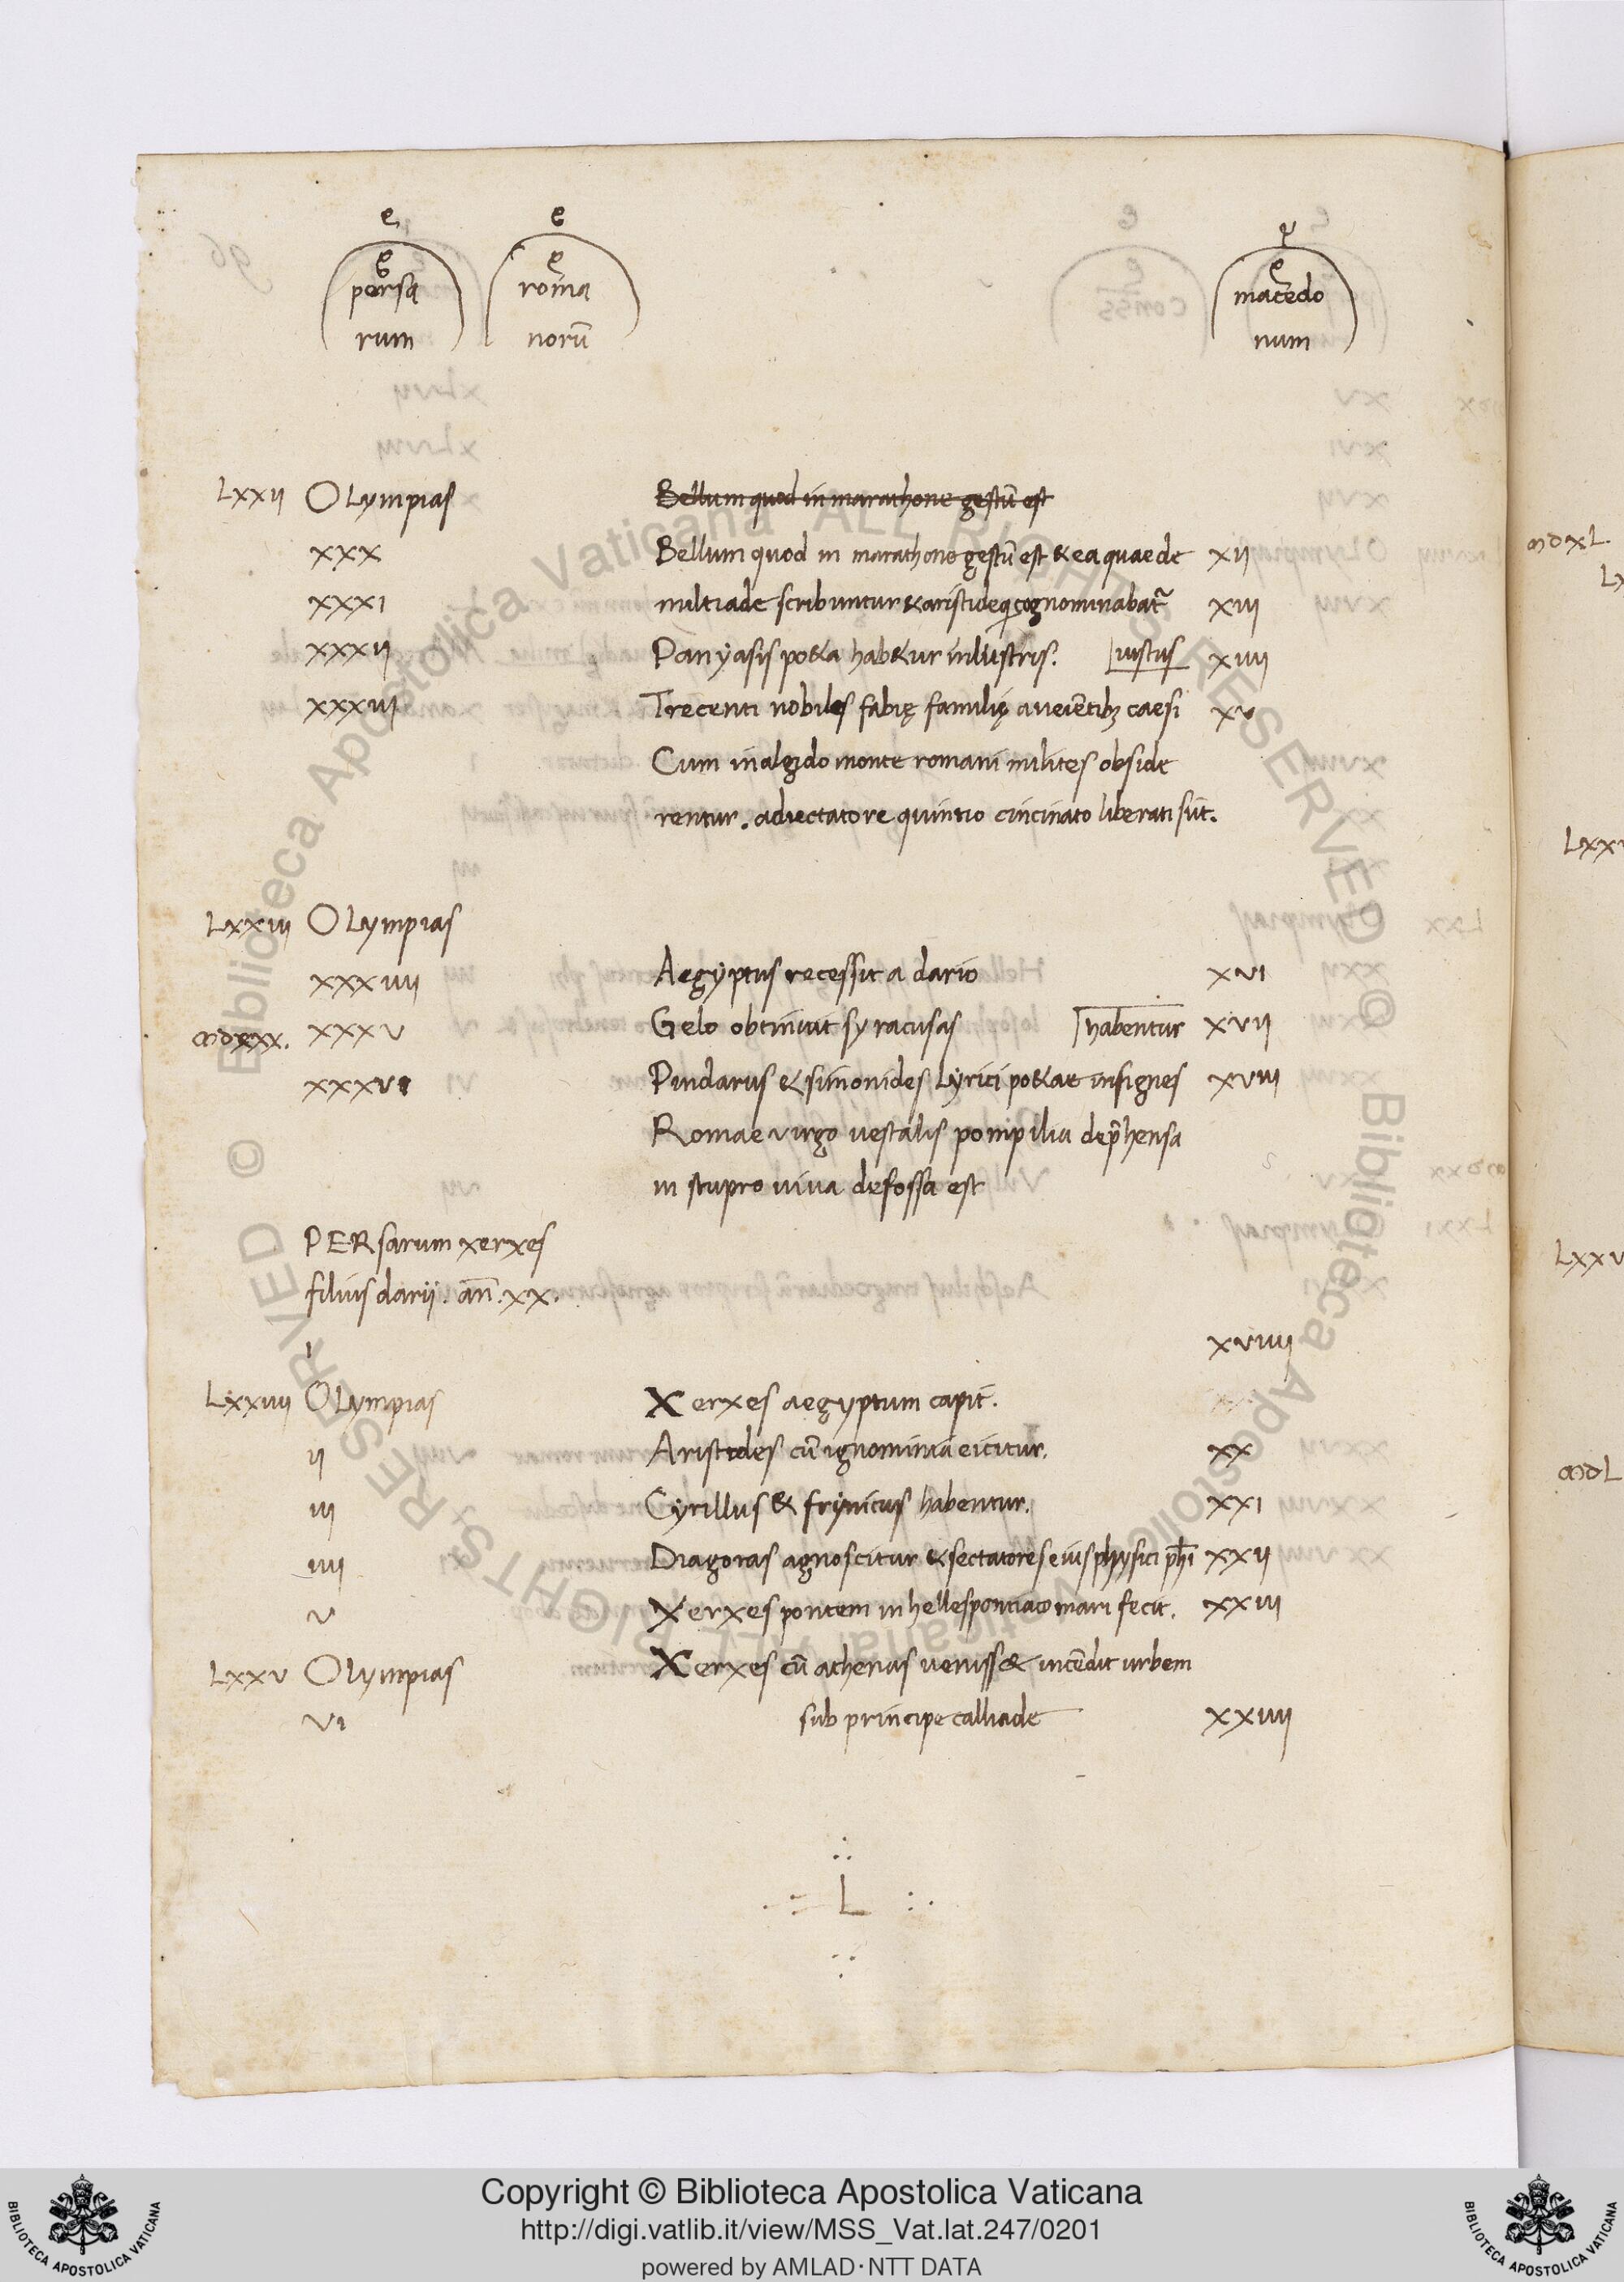 e e e
e e e
persa roma macedo
rum norū num
Lxxii OLympias Bellum quod in marathone gestū est
xxx Bellum quod in marathone gestū est & ea quae de xii
xxxi miltiade scribuntur & aristide q cognominabat᷑ xiii
xxxii Panyasis po&a hab&ur inlustris. iustus xiiii
xxxiii Trecenti nobiles fabię familię a veiētib; caesi xv
Cum in algido monte romani milites obside
rentur. a dictatore quintio cincinato liberati sūt.
Lxxiii OLympias
xxxiiii Aegyptus recessit a dario xvi
xxxv Gelo obtinuit syracusas habentur xvii
xxxvi Pindarus & simonides Lyrici po&ae insignes xviii
Romae virgo vestalis pompilia dep̄hensa
in stupro viva defossa est
PERsarum xerxes
filius darii. añ. xx.
i xviiii
Lxxiiii OLympias Xerxes aegyptum capit.
ii Aristides cū ignominia eicitur. xx
iii Cyrillus & frynicus habentur. xxi
iiii Diagoras agnoscitur & sectatores eius physici ph̄i xxii
v Xerxes pontem in hellespontiaco mari fecit. xxiii
Lxxv OLympias Xerxes cū athenas veniss& incēdit urbem
vi sub principe calliade xxiiii
L
Copyright © Biblioteca Apostolica Vaticana
http://digi.vatlib.it/view/MSS_Vat.lat.247/0201
powered by AMLAD·NTT DATA
BIBLIOTECA APOSTOLICA VATICANA
BIBLIOTECA APOSTOLICA VATICANA
© Biblioteca Apostolica Vaticana ALL RIGHTS RESERVED
© Biblioteca Apostolica Vaticana ALL RIGHTS RESERVED